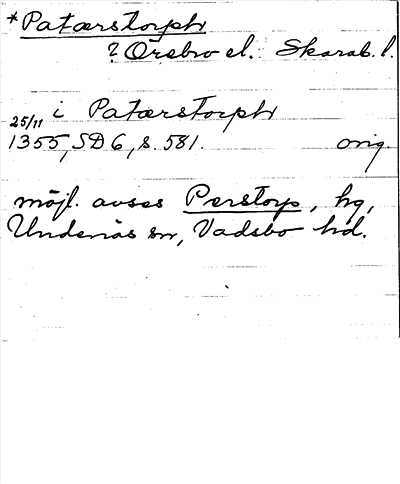 *Patærstorph
? Örebro el. Skarab. l.
i Patærstorph
25/11 1355, SD 6, s. 581. orig
möjl. avses Perstorp, hg,
Undenäs sn, Vadsbo hd.